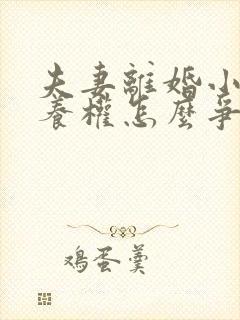 夫妻離婚小
養權怎麼爭
鸡蛋羹